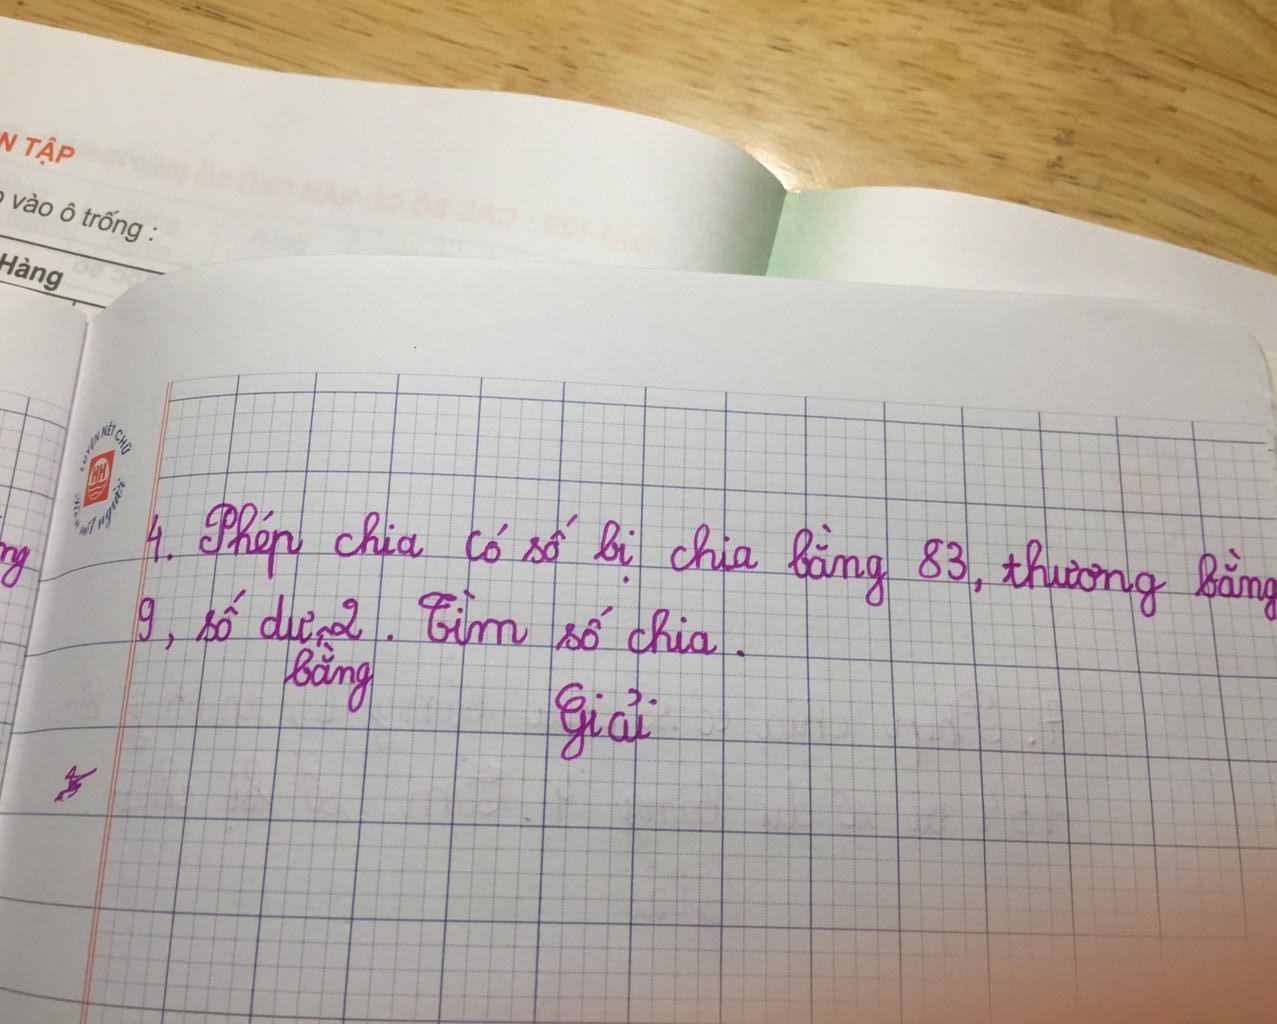 N TẬP
vào ô trống :
Hàng
LUYỆN NÉT CHỮ
HH
RÈN NẾT người
ng
4. Phép chia có số bị chia bằng 83, thương bằng
9, số dư 2. Tìm số chia.
bằng
Giải